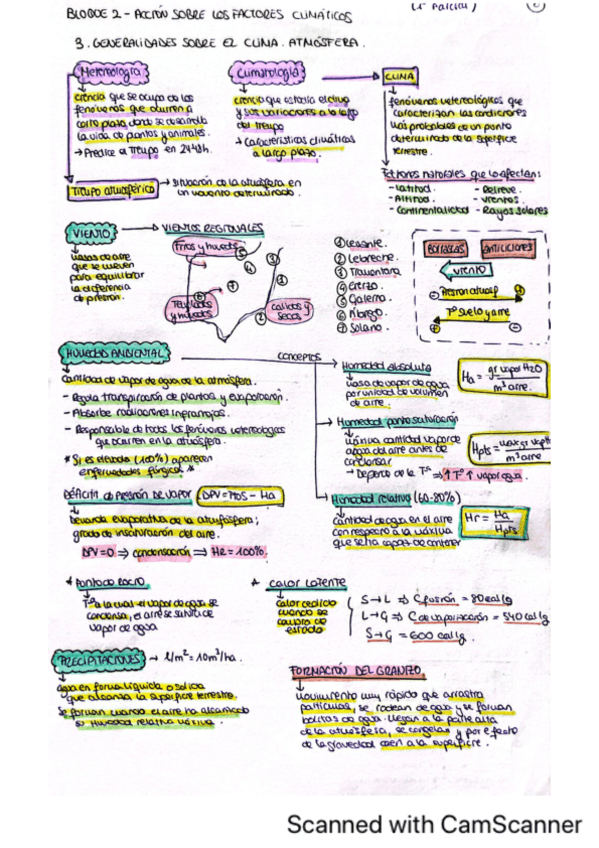 BLOQUE 2 - ACCIÓN SOBRE LOS FACTORES CLIMÁTICOS
(1er Parcial)
3. GENERALIDADES SOBRE EL CLIMA. ATMÓSFERA.
Meteorología
ciencia que se ocupa de los
fenómenos que ocurren a
corto plazo donde se desarrolla
la vida de plantas y animales.
→ Predice a Tiempo en 24-48h.
Tiempo atmosférico → situación de la atmósfera en
un momento determinado.
Climatología
ciencia que estudia el clima
y sus variaciones a lo largo
del tiempo
→ Características climáticas
a largo plazo.
CLIMA
fenómenos meteorológicos que
caracterizan las condiciones
más probables de un punto
determinado de la superficie
terrestre.
Factores naturales que lo afectan:
- Latitud. - Relieve.
- Altitud. - Vientos.
- Continentalidad - Rayos solares
VIENTO → VIENTOS REGIONALES
masas de aire
que se mueven
para equilibrar
la diferencia
de presión.
Fríos y húmedos
Templados
y húmedos
Cálidos y
secos
① Levante.
② Lebeche.
③ Tramontana
④ Cierzo.
⑤ Galerna.
⑥ Ábrego.
⑦ Solano.
BORRASCAS ANTICICLONES
VIENTO
⊖ Presión atmosf ⊕
Tª suelo y aire
⊕ ⊖
HUMEDAD AMBIENTAL
Cantidad de vapor de agua de la atmósfera.
- Regula transpiración de plantas y evaporación.
- Absorbe radiaciones infrarrojas.
- Responsable de todos los fenómenos meteorológicos
que ocurren en la atmósfera.
* Si es elevada (100%) aparecen
enfermedades fúngicas *
CONCEPTOS
Humedad absoluta
masa de vapor de agua
por unidad de volumen
de aire.
Ha = gr vapor H2O
m³ aire.
Humedad punto saturación
máxima cantidad vapor de
agua del aire antes de
condensar
→ Depende de la Tª → ↑Tª ↑ vapor agua.
Hpts =
m³ aire
Humedad relativa (60-80%)
Cantidad de agua en el aire
con respecto a la máxima
que sería capaz de contener
Hr = Ha
Hpts
Déficit de Presión de Vapor (DPV = Hpts - Ha)
Demanda evaporativa de la atmósfera;
grado de insaturación del aire.
DPV=0 ⇒ condensación ⇒ Hr = 100%.
* Punto de rocío
Tª a la cual el vapor de agua se
condensa, el aire se satura de
vapor de agua
* CALOR LATENTE
calor cedido
cuando se
cambia de
estado
S → L ⇒ C fusión = 80 cal/g
L → G ⇒ C de vaporización = 540 cal/g
S → G = 600 cal/g.
PRECIPITACIONES → 1 l/m² = 10m³/ha.
agua en forma líquida o sólida
que alcanza la superficie terrestre.
Se forman cuando el aire ha alcanzado
su humedad relativa máxima.
FORMACIÓN DEL GRANIZO
Movimiento muy rápido que arrastra
partículas, se rodean de agua y se forman
bolitas de agua. Llegan a la parte alta
de la atmósfera, se congelan y por efecto
de la gravedad caen a la superficie.
Scanned with CamScanner